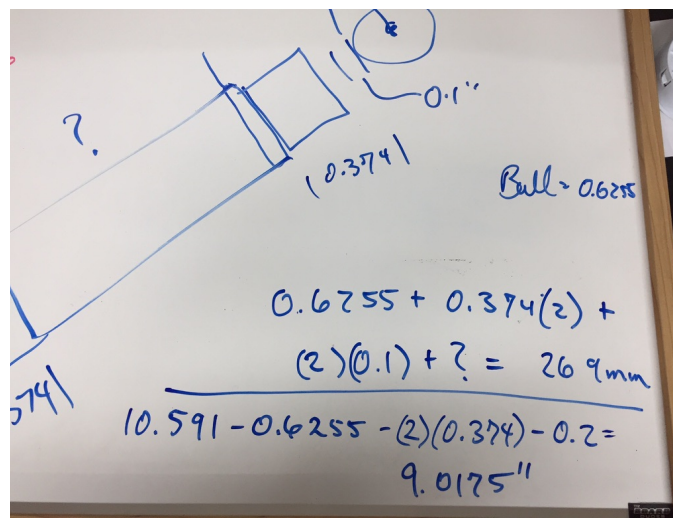 ?
0.1"
|0.374|
Ball = 0.6255
0.6255 + 0.374(2) +
(2)(0.1) + ? = 269mm
574|
10.591 - 0.6255 - (2)(0.374) - 0.2 =
9.0175"